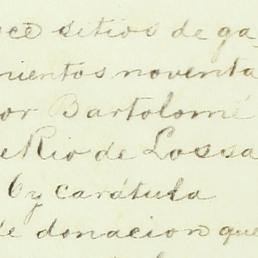 ce sitios de ga
mientos noventa
or Bartolomé
e Rio de Lossa
6 y carátula
de donacion que